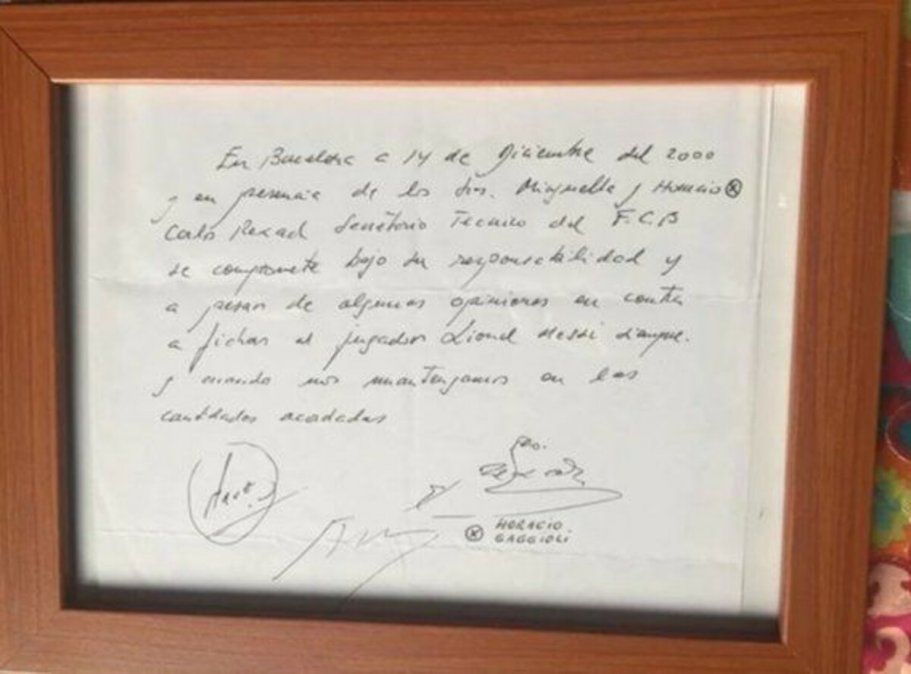 En Barcelona a 14 de Diciembre del 2000
y en presencia de los Srs. Minguella y Horacio ⊗
Carlos Rexach Secretario Tecnico del F.C.B
se compromete bajo su responsabilidad y
a pesar de algunas opiniones en contra
a fichar al jugador Lionel Messi siempre
y cuando nos mantengamos en las
cantidades acordadas
⊗ HORACIO
GAGGIOLI